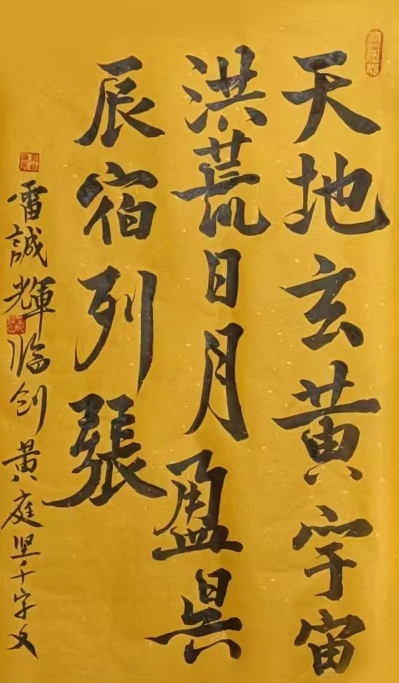 天地玄黄宇宙
洪荒日月盈昃
辰宿列張
雷誠輝临创黄庭坚千字文